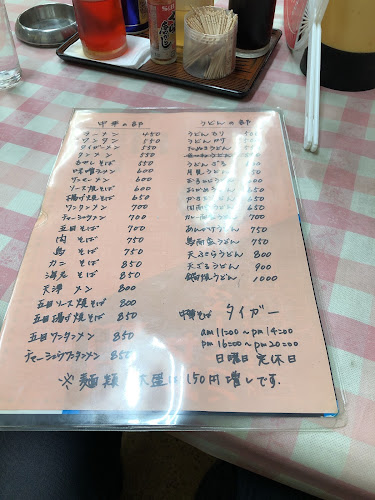 中華の部
ラーメン 450
ワンタン 550
タイガーメン 550
タンメン 550
もやしそば 550
味噌ラーメン 600
ワンターメン 600
ソース焼そば 600
揚げ焼そば 650
ワンタンメン 700
チャーシュウメン 700
五目そば 700
肉そば 750
鳥そば 750
カニそば 850
海老そば 850
天津メン 800
五目ソース焼そば 800
五目揚げ焼そば 850
五目ワンタンメン 850
チャーシュウワンタンメン 850
うどんの部
うどんもり
うどんかけ
たぬきうどん
うどんざる
月見うどん
おかめうどん 650
カレー南ばんうどん 700
あんかけうどん 750
鳥南ばんうどん 750
天ぷらうどん 800
天ざるうどん 900
鍋焼うどん 1000
中華そば タイガー
am 11:00 ~ pm 14:00
pm 16:00 ~ pm 20:00
日曜日 定休日
※麺類 大盛は150円増しです.